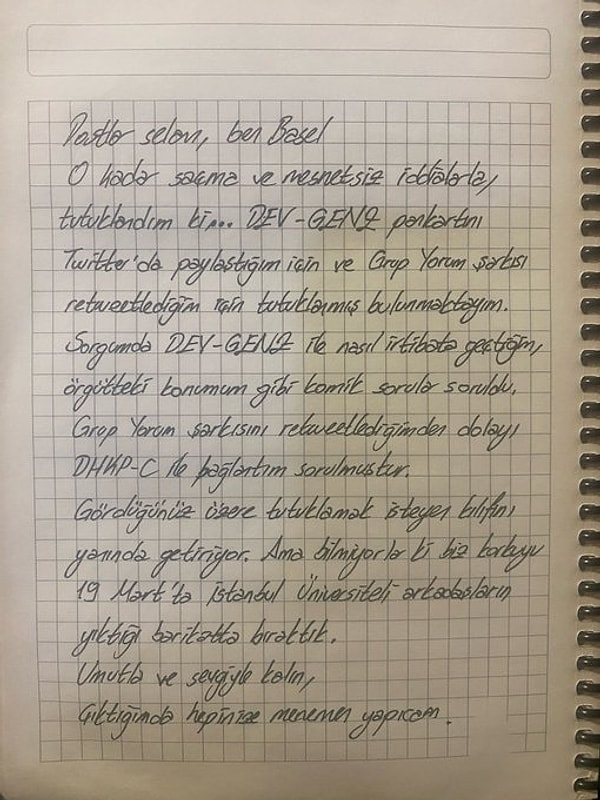 Dostlar selam, ben Basel
O kadar saçma ve mesnetsiz iddialarla,
tutuklandım ki... DEV-GENÇ pankartını
Twitter'da paylaştığım için ve Grup Yorum şarkısı
retweetlediğim için tutuklanmış bulunmaktayım.
Sorgumda DEV-GENÇ ile nasıl irtibata geçtiğim,
örgütteki konumum gibi komik sorular soruldu.
Grup Yorum şarkısını retweetlediğimden dolayı
DHKP-C ile bağlantım sorulmuştur.
Gördüğünüz üzere tutuklamak isteyen kılıfını
yanında getiriyor. Ama bilmiyorlar ki biz korkuyu
19 Mart'ta İstanbul Üniversiteli arkadaşların
yıktığı barikatta bıraktık.
Umutla ve sevgiyle kalın,
Çıktığımda hepinize menemen yapıcam.